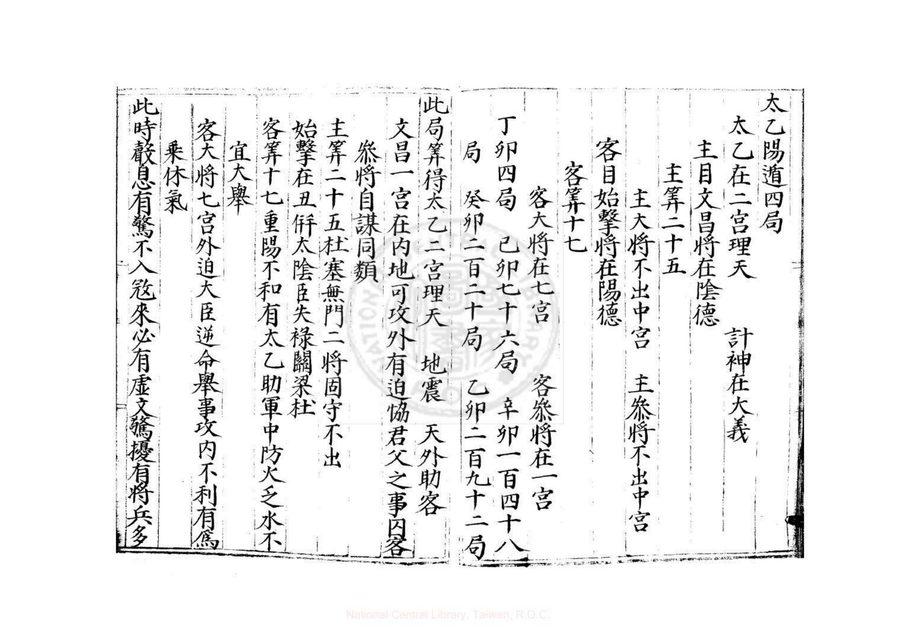 太乙陽遁四局
太乙在二宮理天　計神在大義
主目文昌將在陰德
主筭二十五
主大將不出中宮　主叅將不出中宮
客目始擊將在陽德
客筭十七
客大將在七宮　客叅將在一宮
丁卯四局　己卯七十六局　辛卯一百四十八
局　癸卯二百二十局　乙卯二百九十二局
此局筭得太乙二宮理天　地震　天外助客
文昌一宮在内地可攻外有迫恊君父之事内客
叅將自謀同類
主筭二十五杜塞無門二將固守不出
始擊在丑併太陰臣失禄關梁杜
客筭十七重陽不和有太乙助軍中防火乏水不
宜大舉
客大將七宮外迫大臣逆命舉事攻内不利有爲
乗休氣
此時聲息有驚不入冦來必有虚文驚擾有將兵多
National Central Library, Taiwan, R.O.C.